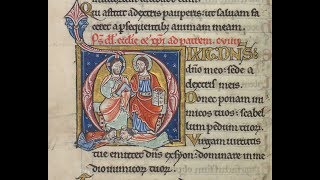 Qui astitit adextris pauperis: ut saluam fa
ceret a persequentib; animam meam.
ad patrem
IXIT DNS
dño meo: sede a
dextris meis.
Donec ponam ini
micos tuos: scabel
lum pedum tuoꝝ.
Virgam uirtutis
tue emittet dns exsyon: dominare in me
dio inimicoꝝ tuoꝝ.